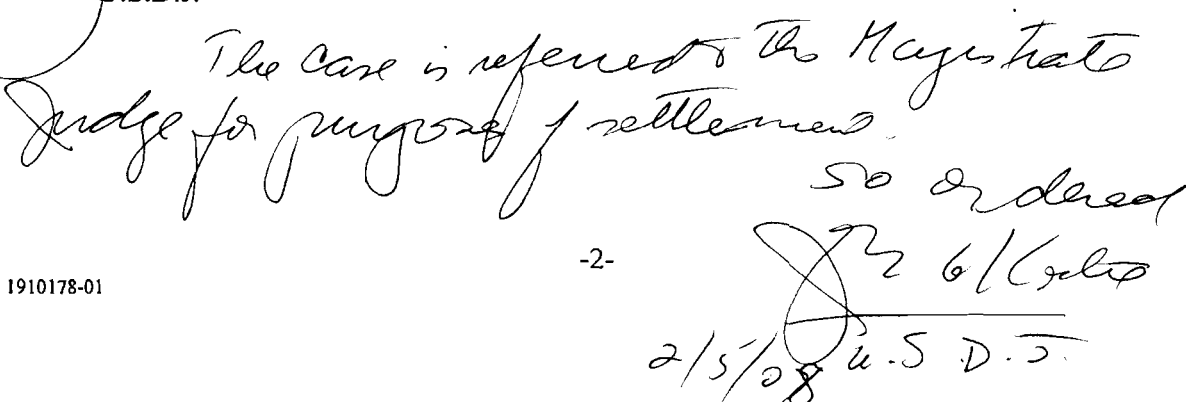 The Case is referred to the Magistrate
Judge for purposes of settlement.
So ordered
-2-
1910178-01
2/5/08 U.S.D.J.